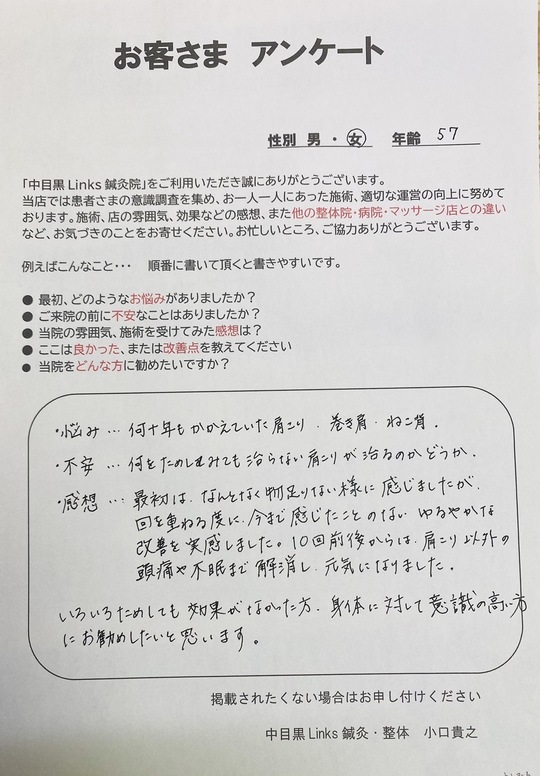 お客さま アンケート
性別 男 ・ 女 年齢 57
「中目黒Links鍼灸院」をご利用いただき誠にありがとうございます。
当店では患者さまの意識調査を集め、お一人一人にあった施術、適切な運営の向上に努めて
おります。施術、店の雰囲気、効果などの感想、また他の整体院・病院・マッサージ店との違い
など、お気づきのことをお寄せください。お忙しいところ、ご協力ありがとうございます。
例えばこんなこと・・・ 順番に書いて頂くと書きやすいです。
● 最初、どのようなお悩みがありましたか？
● ご来院の前に不安なことはありましたか？
● 当院の雰囲気、施術を受けてみた感想は？
● ここは良かった、または改善点を教えてください
● 当院をどんな方に勧めたいですか？
・悩み … 何十年もかかえていた肩こり．巻き肩．ねこ背．
・不安 … 何をためしみても治らない肩こりが治るのかどうか．
・感想 … 最初は、なんとなく物足りない様に感じましたが、
回を重ねる度に、今まで感じたことのない ゆるやかな
改善を実感しました。10回前後からは、肩こり以外の
頭痛や不眠まで解消し、元気になりました。
いろいろためしても効果がなかった方、身体に対して意識の高い方
にお勧めしたいと思います。
掲載されたくない場合はお申し付けください
中目黒Links鍼灸・整体 小口貴之